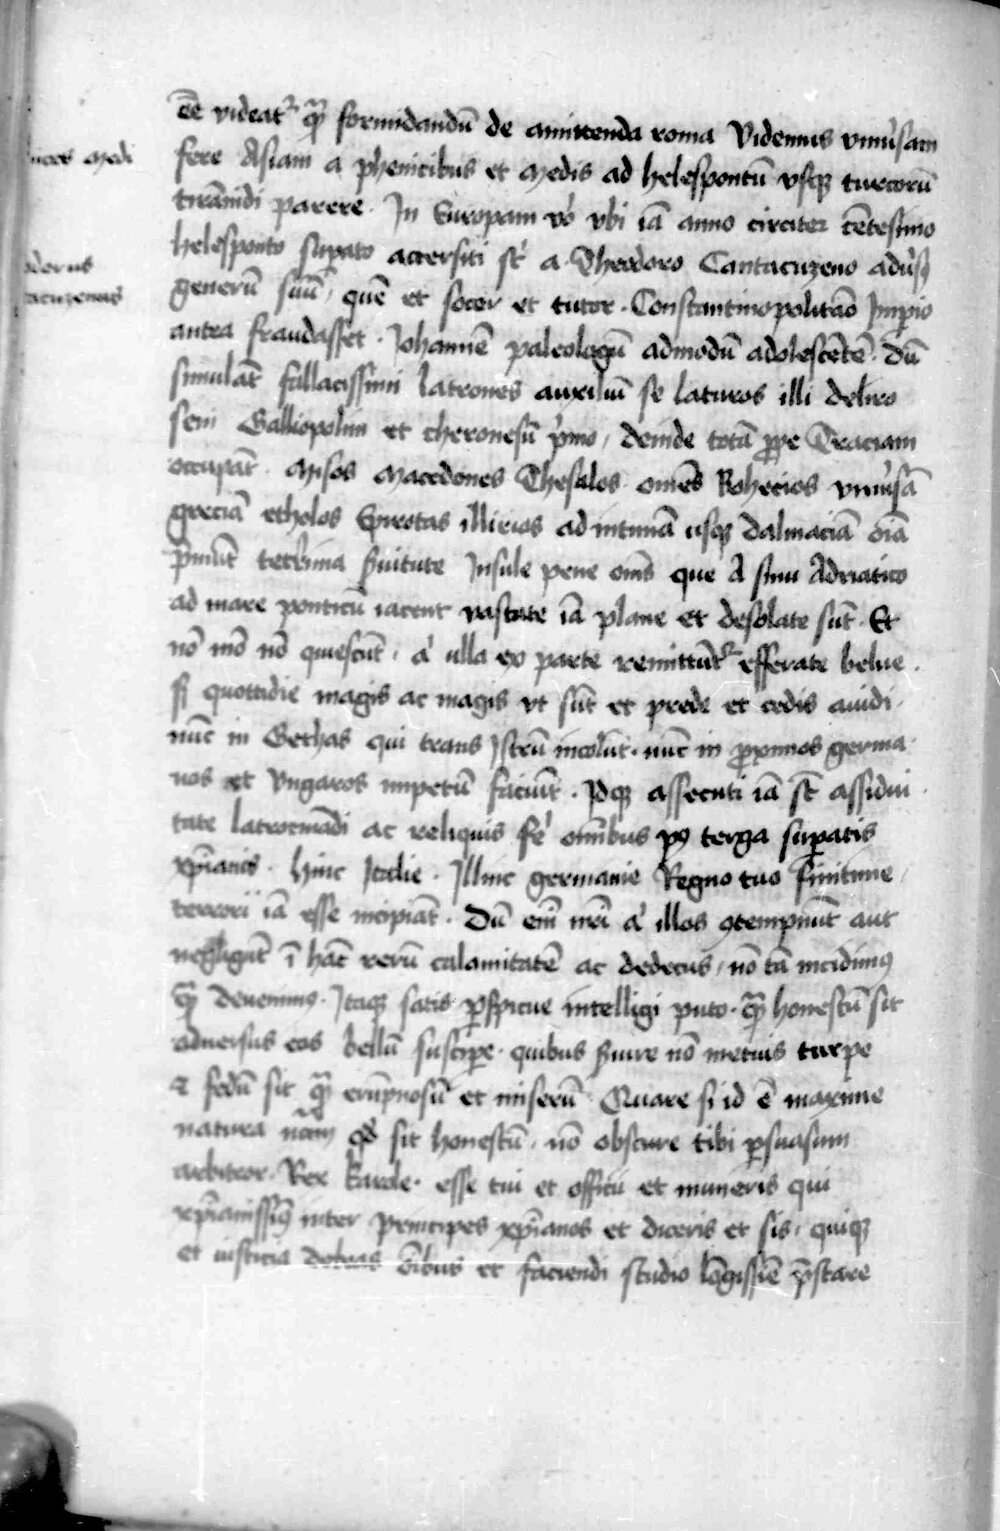 ēe videatr qm̄ formidandū de amittenda roma Videmus vniuͥsam
fere Asiam a phenicibus et Medis ad helespontū vsqꝫ turcorū
tirānidi parere. In Europam vo͛ vbi iā anno circiter cētesimo
helesponto supato accersiti st͛ a Theodoro Cantacuzeno aduͥsꝰ
generū suū, quē et socer et tutor. Constantinopolitāo Impio
antea fraudasset. Iohannē paleologū admodū adolescētē. Dū
simulāt fallacissimi latrones auxiliū se laturos illi deliro
seni Galliopolim et cheronesū pͥmo, deinde totā ꝓpe Traciam
occupāt. Misos Macedones Thesalos omēs Bohecios vniuͥsā
greciā etholos Epirotas illirios ad intimā usqꝫ dalmaciā oīa
p̄mūt teterrima suitute Insule pene om̄s que A sinu Adriatico
ad mare ponticū iacent vastate iā plane et desolate sūt. Et
nō mō nō quiescūt, a͛ ulla ex parte remittūtr efferate belue.
s; quottidie magis ac magis vt sūt et prede et cedis auidi.
nūc in Gethas qui trans Istrū incolūt. nūc in ꝓximos germa
nos et Vngaros impetū faciūt. Idqꝫ assecuti iā st̄ assidui
tate latrocinādi ac reliquis fe͛ omībus pꝰ terga supatis
xp̄ianis. hinc Italie. Illinc germanie Regno tuo finitime,
terrori iā esse incipiāt. Dū em̄ nr̄i a͛ illos ꝯtempnūt aut
negligūt ī hāc rerū calamitatē ac dedecus, nō tā incidimꝰ
qm̄ deuenimꝰ. Itaqꝫ satis ꝑspicue intelligi puto. qm̄ honestū sit
aduersus eos bellū suscipe. quibus suire nō metuis turpe
⁊ fedū sit qm̄ erūpnosū et miserū Quare si id ē maxime
natura nr̄am qd̄ sit honestū. nō obscure tibi ꝑsuasum
arbitror. Rex karole. esse tui et officii et muneris qui
xp̄ianissimꝰ inter principes xp̄ianos et diceris et sis, quiqꝫ
et iusticia oībus et faciendi studio lōgissīe p̄stare
Medi